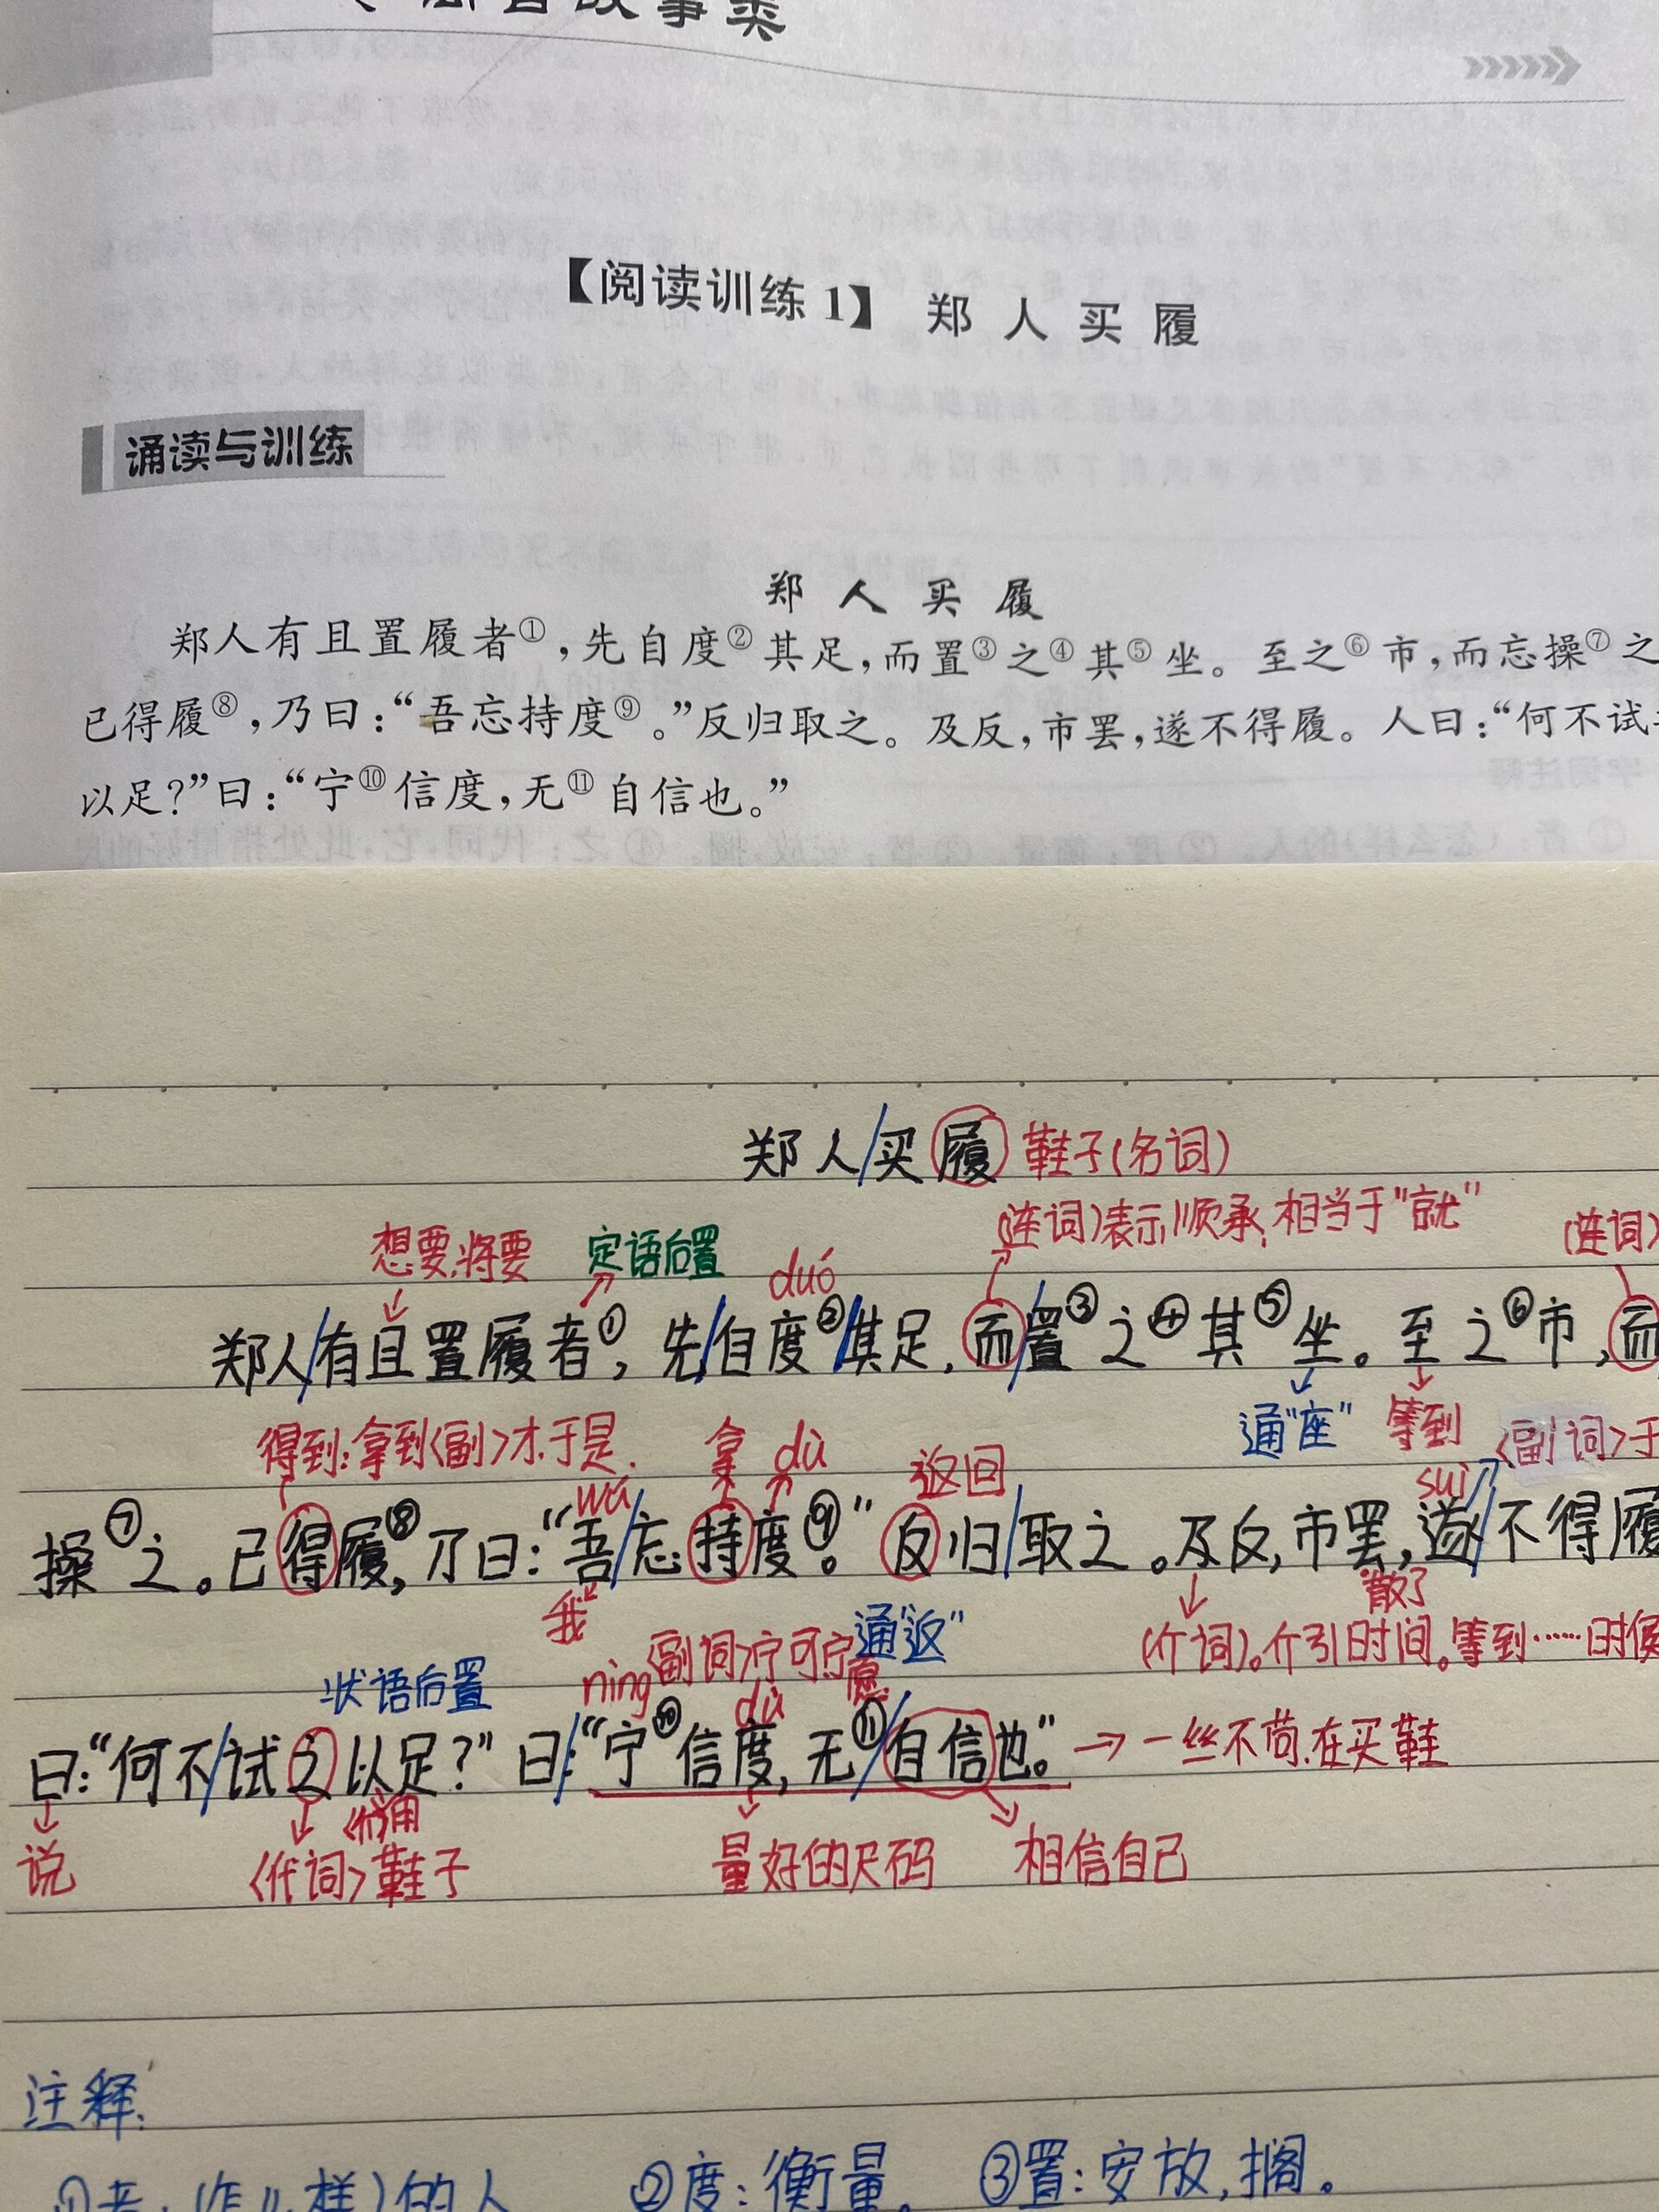 故事类
【阅读训练1】 郑人买履
诵读与训练
郑人买履
郑人有且置履者①,先自度②其足,而置③之④其⑤坐。至之⑥市,而忘操⑦之
已得履⑧,乃曰:“吾忘持度⑨。”反归取之。及反,市罢,遂不得履。人曰:“何不试
以足?”曰:“宁⑩信度,无⑪自信也。”
郑人/买履 鞋子(名词)
(连词)表示顺承,相当于“就” (连词)
想要,将要 定语后置 duó
郑人/有且置履者①,先/自度②/其足,而/置③之④其⑤坐。至之⑥市,而
通“座” 等到
得到:拿到<副>才.于是. 拿 dù 返回 suì <副词>于
wú
操⑦之。已得履⑧,乃曰:“吾/忘持度⑨。”反归/取之。及反,市罢,遂/不得履
我 通“返” 散了
(介词)。介引时间。等到……时候
状语后置 nìng <副词>宁可,宁愿 dù
曰:“何不/试之以足?”曰:/“宁⑩信度,无⑪/自信也。”→一丝不苟.在买鞋
说 <代词>鞋子 <介>用 量好的尺码 相信自己
注释:
①者:(怎么样)的人 ②度:衡量。 ③置:安放,搁。